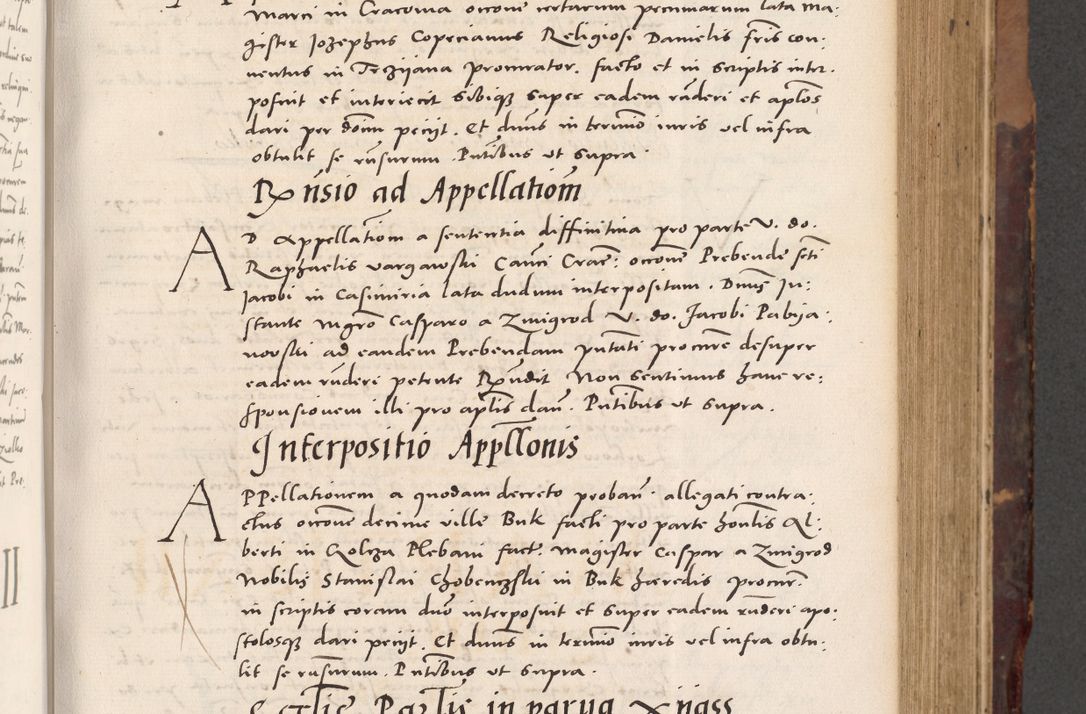 Marci in Cracovia occōne certarum pecuniarum lata ma:
gister Jozephus Copecianus Religiosi Danielis fris con:
ventus in Trzijana procurator. facto et in scriptis inter.
posuit et interiecit sibique super eadem rn̄deri et aplos
dari per dōnm pecijt. Et dnus in termino iuris vel infra
obtulit se rn̄surum. Pn̄tibus ut supra.
Rn̄sio ad Appellationē
AD Appellationē a sententia diffinitiva pro parte V. do.
Raphaelis vargawski Canci Crac: occōne Prebende scti
Jacobi in Casimiria lata dudum interpositam. Dnus In:
stante mgrō Casparo a Zmigrod V. do. Jacobi Pabija:
novski ad eandem Prebendam pntāti procurē desuper
eadem rn̄deri petente Rn̄dit Non sentimus hanc re:
sponsionem illi pro aplis dan̄. Pn̄tibus ut supra.
Interpositio Appllōnis
APPellationem a quodam decreto proban̄. allegati contra:
ctus occōne decime ville Buk facti pro parte honlis Al:
berti in Plebani fact. Magister Caspar a Zmigrod
Nobilis Stanislai in Buk hæredis procur.
in scriptis coram dnō interposuit et super eadem rn̄deri apo:
stolosque dari pecijt. Et dnus in termino iuris vel infra obtu:
lit se rn̄surum. Pn̄tibus ut supra.
in parva